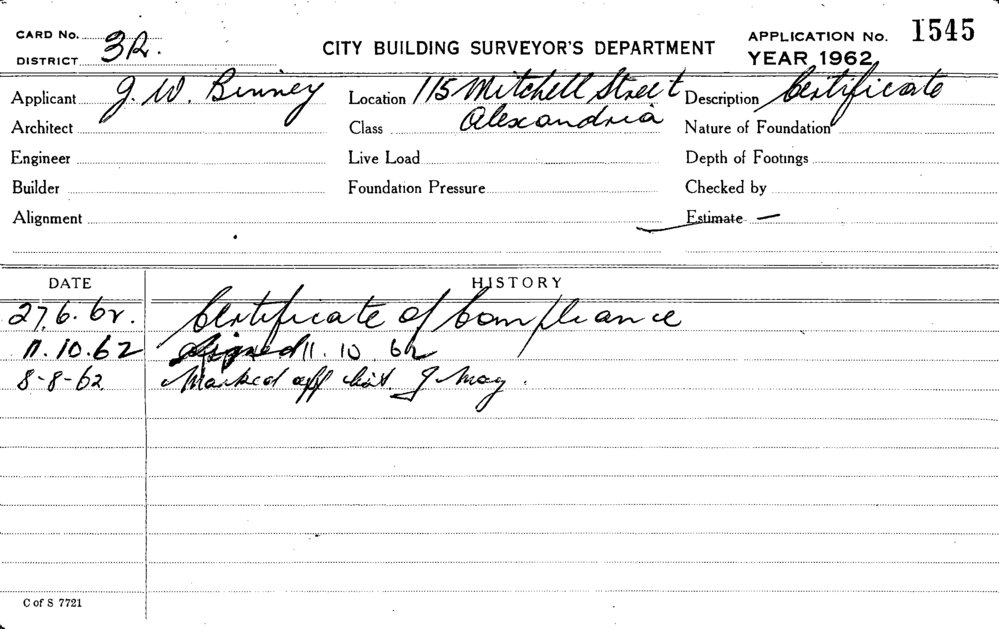 CARD No. 3R.
DISTRICT
CITY BUILDING SURVEYOR'S DEPARTMENT
APPLICATION No. 1545
YEAR 1962
Applicant J. W. Binney Location 115 Mitchell Street Description Certificate
Architect Class Alexandria Nature of Foundation
Engineer Live Load Depth of Footings
Builder Foundation Pressure Checked by
Alignment Estimate —
DATE HISTORY
27.6.62. Certificate of Compliance
11.10.62 signed 11.10.62
8-8-62 Marked off list. J May.
C of S 7721